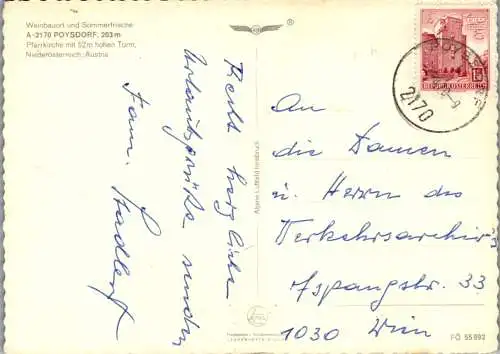 Weinbauort und Sommerfrische
A-2170 POYSDORF, 203 m
Pfarrkirche mit 52m hohen Turm,
Niederösterreich, Austria
Recht herzliche
Urlaubsgrüße senden
Fam.
Alpine Luftbild Innsbruck
REPUBLIK ÖSTERREICH
POYSDORF
2170
An
die Damen
u. Herrn des
Verkehrsarchivs
Aspangstr. 33
1030 Wien
FÖ 55 993